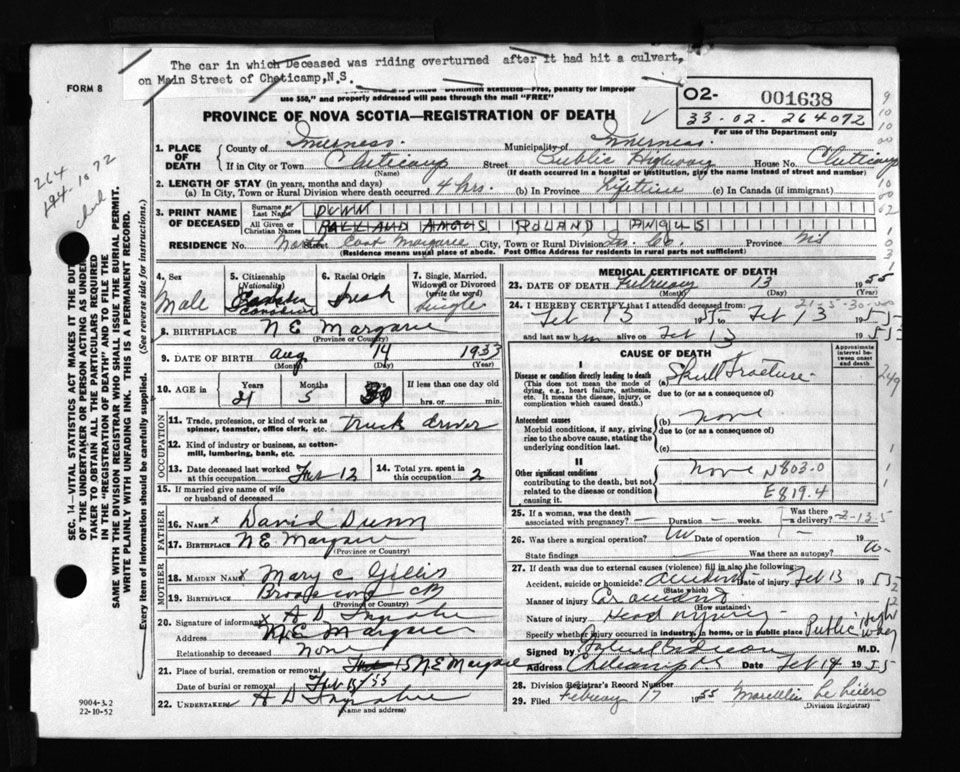 The car in which Deceased was riding overturned after it had hit a culvert,
on Main Street of Cheticamp, N.S.
FORM 8
use $50," and properly addressed will pass through the mail "FREE"
O2- 001638
33-02-264072
For use of the Department only
PROVINCE OF NOVA SCOTIA—REGISTRATION OF DEATH
1. PLACE OF DEATH
County of Inverness. Municipality of Inverness.
If in City or Town Cheticamp Street Public Highway House No. Cheticamp
(Name) (If death occurred in a hospital or institution, give the name instead of street and number)
2. LENGTH OF STAY (in years, months and days)
(a) In City, Town or Rural Division where death occurred 4 hrs. (b) In Province Lifetime (c) In Canada (if immigrant)
3. PRINT NAME OF DECEASED
Surname or Last Name DUNN
All Given or Christian Names ANGUS ROLAND ANGUS
RESIDENCE No. Street East Margaree City, Town or Rural Division Inv. Co. Province N.S
(Residence means usual place of abode. Post Office Address for residents in rural parts not sufficient)
4. Sex Male
5. Citizenship (Nationality) Canadian
6. Racial Origin Irish
7. Single, Married, Widowed or Divorced (write the word) Single
8. BIRTHPLACE N E Margaree
(Province or Country)
9. DATE OF BIRTH Aug 14 1933
(Month) (Day) (Year)
10. AGE in Years 21 Months 5 If less than one day old
hrs. or min.
OCCUPATION
11. Trade, profession, or kind of work as spinner, teamster, office clerk, etc. truck driver
12. Kind of industry or business, as cotton-mill, lumbering, bank, etc.
13. Date deceased last worked at this occupation Feb 12
14. Total yrs. spent in this occupation 2
15. If married give name of wife or husband of deceased
FATHER
16. NAME x David Dunn
17. BIRTHPLACE N E Margaree
(Province or Country)
MOTHER
18. MAIDEN NAME x Mary C Gillis
19. BIRTHPLACE CB
(Province or Country)
20. Signature of informant x A D
Address N.E. Margaree
Relationship to deceased None
21. Place of burial, cremation or removal N E Margaree
Date of burial or removal Feb 15/55
22. UNDERTAKER A D
(Name and address)
MEDICAL CERTIFICATE OF DEATH
23. DATE OF DEATH February 13 1955
(Month) (Day)
21-5-30-00
24. I HEREBY CERTIFY that I attended deceased from:
Feb 13 1955 to Feb 13 1955
and last saw him alive on Feb 13 1955
CAUSE OF DEATH
Approximate interval between onset and death
I
Disease or condition directly leading to death
(This does not mean the mode of dying, e.g., heart failure, asthenia, etc. It means the disease, injury, or complication which caused death.)
(a) Skull Fracture
due to (or as a consequence of)
249
Antecedent causes
Morbid conditions, if any, giving rise to the above cause, stating the underlying condition last.
(b) None
due to (or as a consequence of)
(c)
II
Other significant conditions contributing to the death, but not related to the disease or condition causing it.
None N803.0
E819.4
25. If a woman, was the death associated with pregnancy? — Duration — weeks. Was there a delivery? —
2-13 5
26. Was there a surgical operation? No Date of operation — 19
State findings Was there an autopsy? No-
27. If death was due to external causes (violence) fill in also the following:
Accident, suicide or homicide? Accident Date of injury Feb 13 1955
(State which)
Manner of injury Car accident
(How sustained)
Nature of injury Head injury
Specify whether injury occurred in industry, in home, or in public place Public Highway
Signed by M.D.
Address Cheticamp Date Feb 14 1955
28. Division Registrar's Record Number
29. Filed February 17 1955 Marcellin
(Division Registrar)
SEC. 14—VITAL STATISTICS ACT MAKES IT THE DUTY
OF THE UNDERTAKER OR PERSON ACTING AS UNDERTAKER TO OBTAIN ALL THE PARTICULARS REQUIRED
IN THE "REGISTRATION OF DEATH" AND TO FILE THE
SAME WITH THE DIVISION REGISTRAR WHO SHALL ISSUE THE BURIAL PERMIT.
WRITE PLAINLY WITH UNFADING INK. THIS IS A PERMANENT RECORD.
Every item of information should be carefully supplied. (See reverse side for instructions.)
264
194-1072
9004-3.2
22-10-52